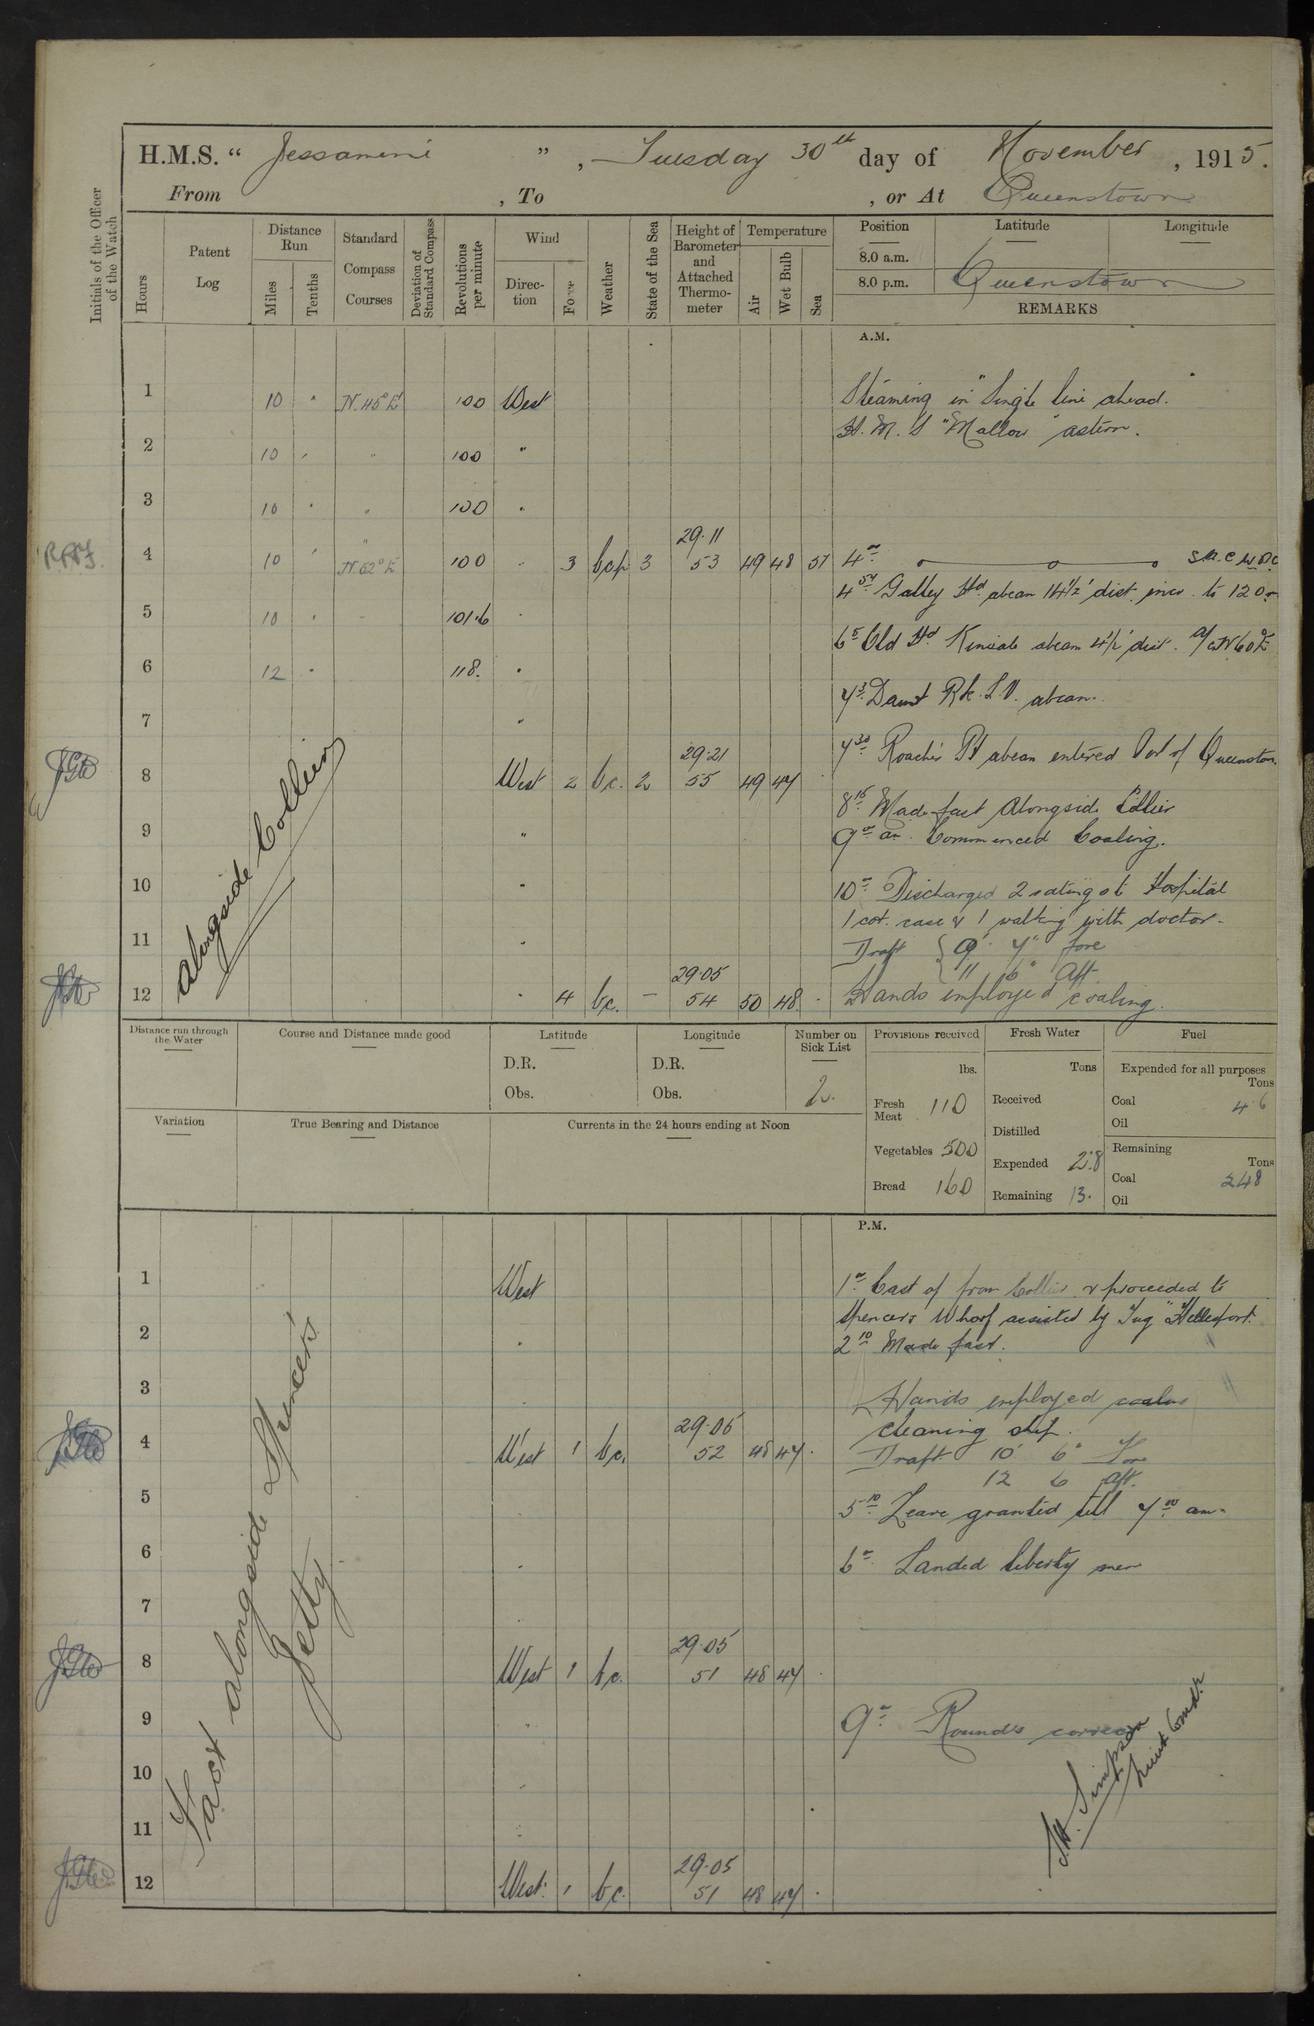 H.M.S. “ Jessamine ” , Tuesday 30th day of November , 1915.
From , To , or At Queenstown
Initials of the Officer of the Watch
Hours
Patent Log
Distance Run
Miles
Tenths
Standard Compass Courses
Deviation of Standard Compass
Revolutions per minute
Wind
Direction
Force
Weather
State of the Sea
Height of Barometer and Attached Thermometer
Temperature
Air
Wet Bulb
Sea
Position
Latitude
Longitude
8.0 a.m.
8.0 p.m. Queenstown
REMARKS
A.M.
1 10 " N.45°E 100 West Steaming in "Single line ahead."
H.M.S "Mallow" astern.
2 10 " " 100 "
3 10 " " 100 "
29.11
4 10 " N.62°E 100 " 3 bcp 3 53 49 48 51 4
4 54 Galley Hd abeam 14½' dist. incr. to 120
5 10 " 101.6 "
6 5 Old Hd Kinsale abeam 4½' dist. a/c N60°E
6 12 " 118. "
7 3 Daunt Rk. L.V. abeam.
7 "
7 30 Roache's Pt abeam entered Port of Queenstown
29.21
8 West 2 b.c. 2 55 49 47
8 15 Made fast alongside Collier
9 "
9 am. Commenced Coaling.
10 "
10 Discharged 2 ratings to Hospital
1 cot. case & 1 walking with doctor.
11 "
Draft { 9' 7" fore
11 6" Aft.
Alongside Collier
29.05
12 " 4 b.c. – 54 50 48 . Hands employed coaling.
Distance run through the Water
Course and Distance made good
Latitude
D.R.
Obs.
Longitude
D.R.
Obs.
Number on Sick List
2.
Provisions received
lbs.
Fresh Meat 110
Vegetables 500
Bread 160
Fresh Water
Tons
Received
Distilled
Expended 2.8
Remaining 13.
Fuel
Expended for all purposes
Tons
Coal 4.6
Oil
Remaining
Tons
Coal 248
Oil
Variation
True Bearing and Distance
Currents in the 24 hours ending at Noon
P.M.
1 West 1 Cast of from Collier & proceeded to
Spencers Wharf assisted by Tug
2 "
2 10 Made fast.
3 "
Hands employed
cleaning ship.
29.05
4 West 1 b.c. 52 48 47 .
Draft 10' 6" Fore
12 6 Aft.
5
5 10 Leave granted till 7 am.
6 "
6 Landed liberty men
7 "
29.05
8 West 1 b.c. 51 48 47 .
9 "
9 Rounds correct
10 "
11 "
29.05
12 West. 1 b.c. 51 48 47 .
Fast alongside Spencer's
Jetty
Simpson
Lieut Comdr.